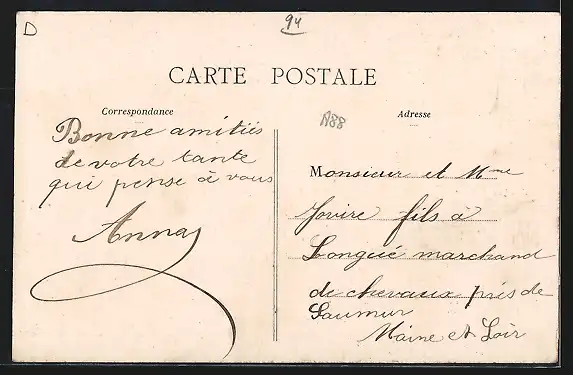 D
94
CARTE POSTALE
Correspondance
A88
Adresse
Bonne amitiés
de votre tante
qui pense à vous
Anna
Monsieur et Mme
Jovire fils à
Longué marchand
de chevaux près de
Saumur
Maine et Loir